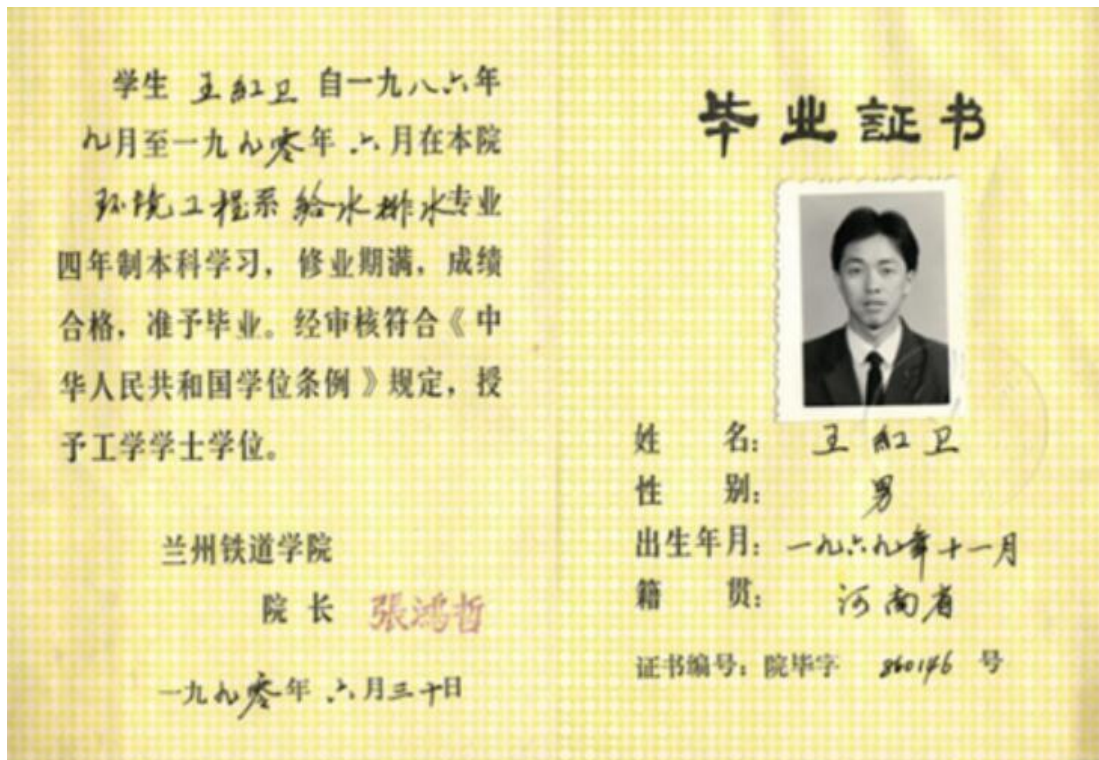 学生 王红卫 自一九八六年
九月至一九九零年 六月在本院
环境工程系给水排水专业
四年制本科学习，修业期满，成绩
合格，准予毕业。经审核符合《中
华人民共和国学位条例》规定，授
予工学学士学位。
兰州铁道学院
院长 張鸿哲
一九九零年 六月三十日
毕业证书
姓 名： 王红卫
性 别： 男
出生年月：一九六九年十一月
籍 贯： 河南省
证书编号：院毕字 860146 号